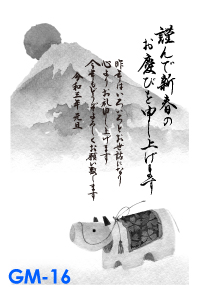 謹んで新春の
お慶びを申し上げます
昨年はいろいろとお世話になり
心よりお礼申し上げます
今年もどうぞよろしくお願い致します
令和三年 元旦
GM-16